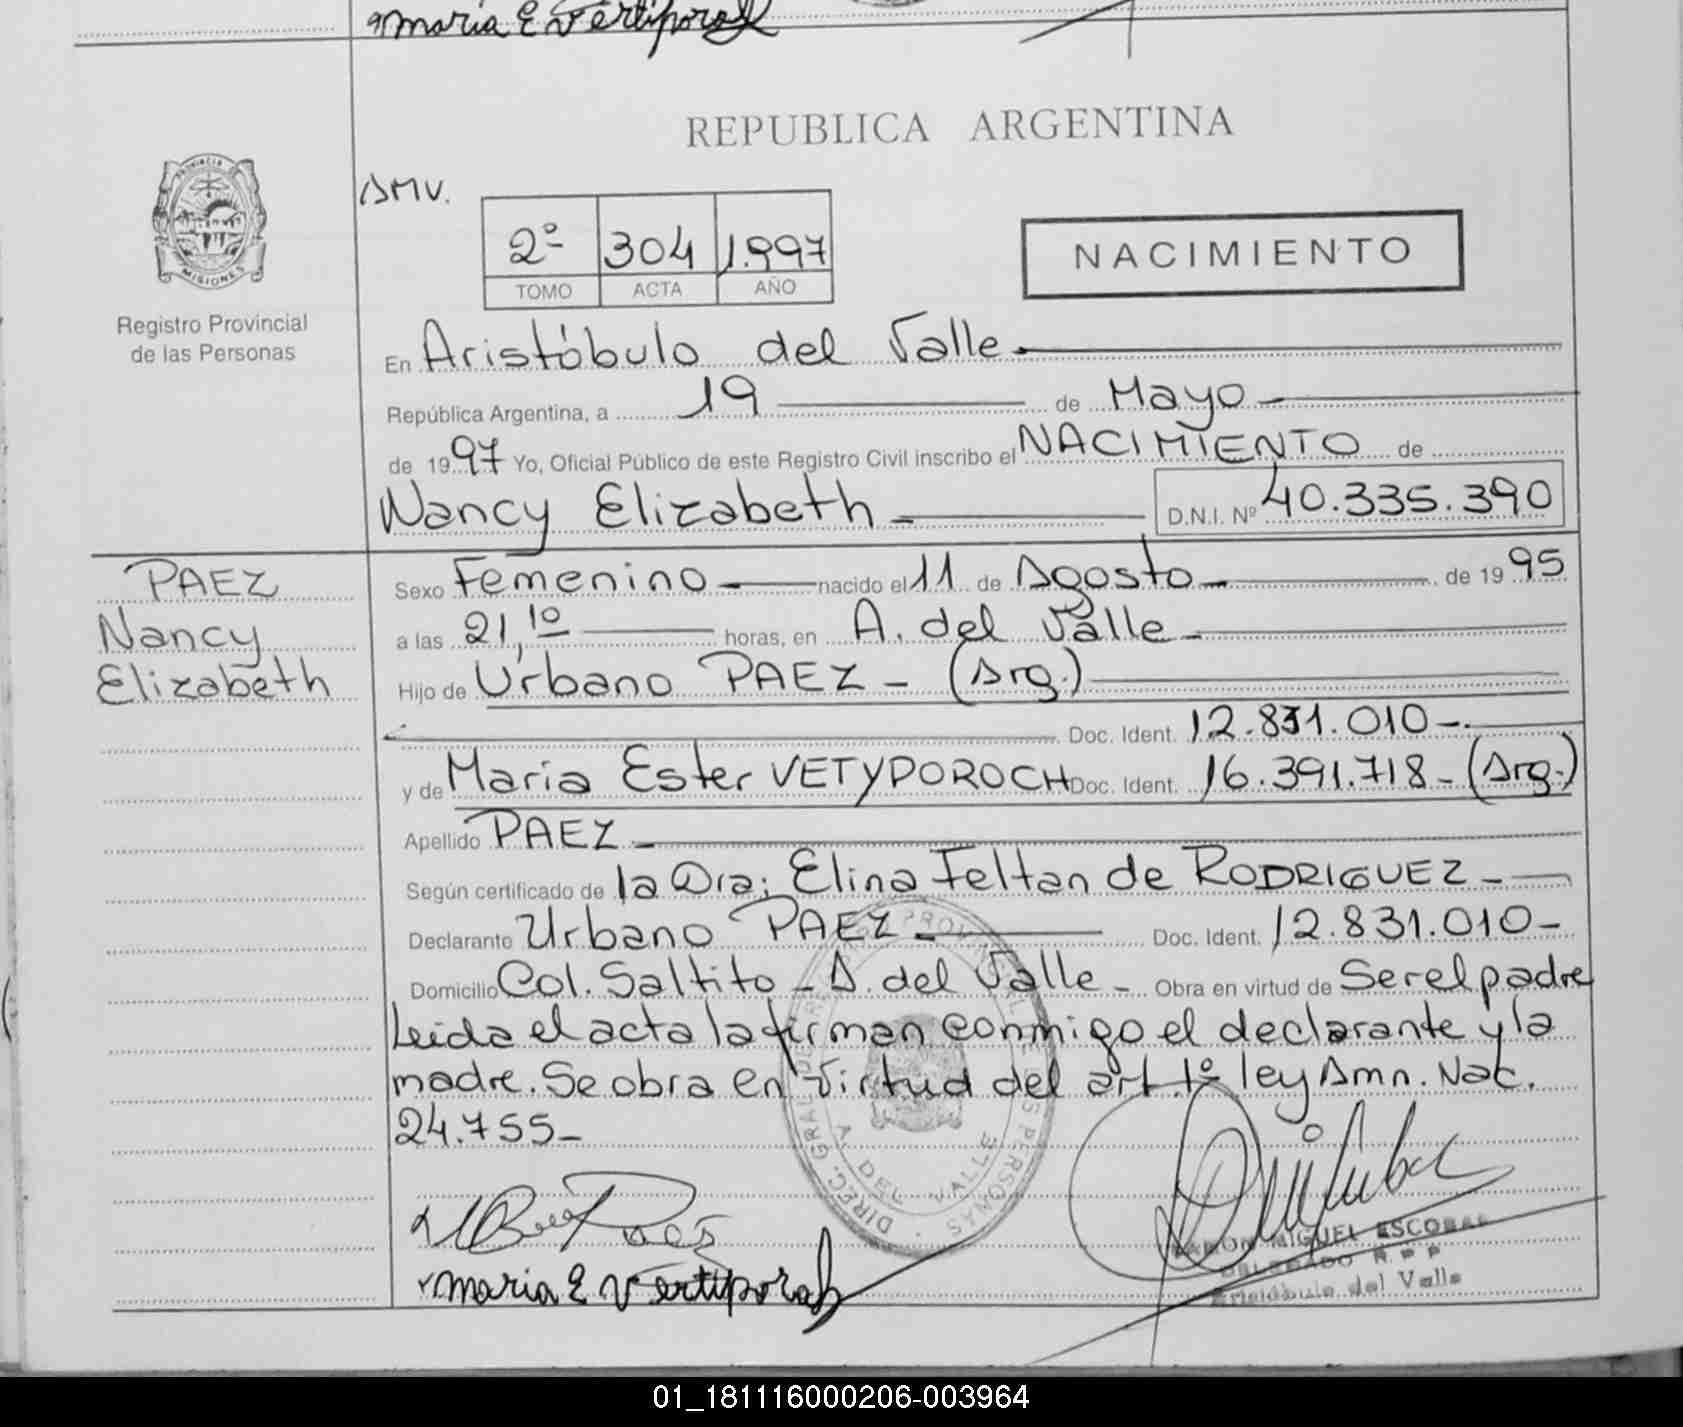 maria E Vertiporoh
REPUBLICA ARGENTINA
PROVINCIA
MISIONES
Registro Provincial
de las Personas
AMV.
2º 304 1.997
TOMO ACTA AÑO
NACIMIENTO
En Aristóbulo del Valle.
República Argentina, a 19 de Mayo
de 1997 Yo, Oficial Público de este Registro Civil inscribo el NACIMIENTO de
Nancy Elizabeth D.N.I. Nº 40.335.390
PAEZ
Nancy
Elizabeth
Sexo Femenino nacido el 11 de Agosto de 1995
a las 21,10 horas, en A. del Valle
Hijo de Urbano PAEZ - (Arg.)
Doc. Ident. 12.831.010-.
y de Maria Ester VETYPOROCH Doc. Ident. 16.391.718- (Arg.)
Apellido PAEZ
Según certificado de la Dra; Elina Feltan de RODRIGUEZ -
Declarante Urbano PAEZ - Doc. Ident. 12.831.010-
Domicilio Col. Saltito - A. del Valle - Obra en virtud de Ser el padre
Leida el acta la firman conmigo el declarante y la
madre. Se obra en virtud del art. 1º ley Amn. Nac.
24.755-
DIREC. GRAL. DE REG. PROVINCIAL DE LAS PERSONAS
A DEL VALLE
Paez
maria E Vertiporoh
RAMON MIGUEL ESCOBAR
DELEGADO R.P.P
Aristóbulo del Valle
01_181116000206-003964